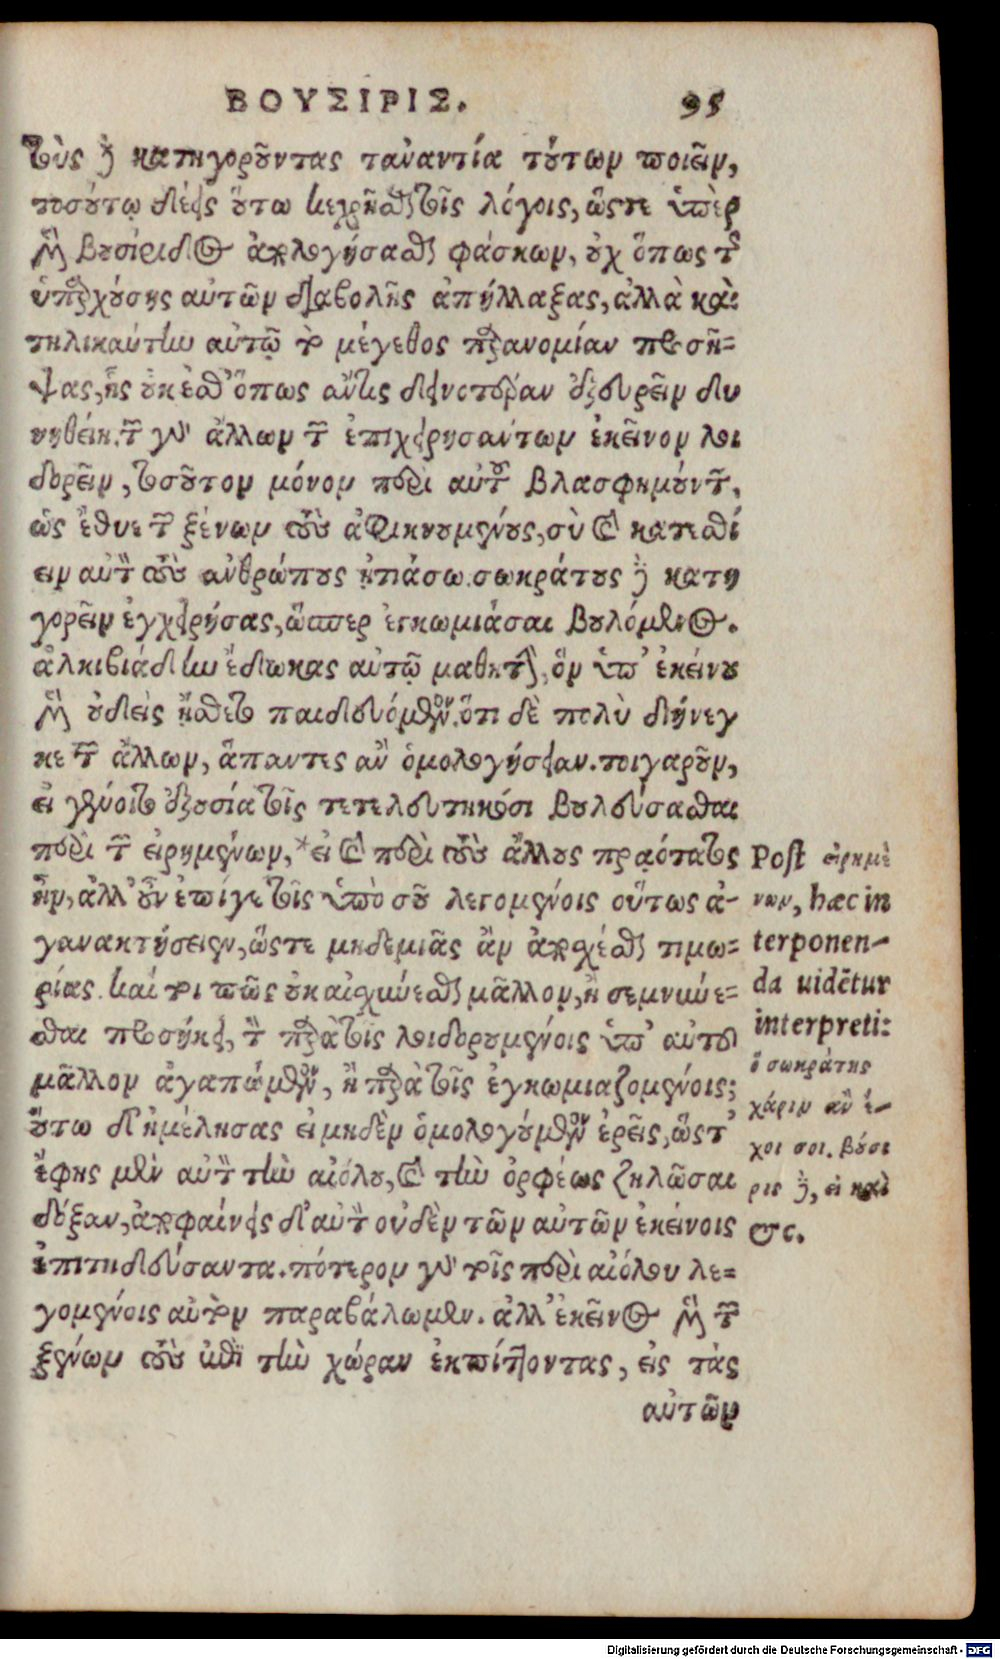 ΒΟΥΣΙΡΙΣ. 95
τοὺς δὲ κατηγοροῦντας τἀναντία τούτων ποιεῖν,
τοσούτῳ δέεις οὕτω κεχρῆσθαι τοῖς λόγοις, ὥστε ὑπὲρ
μὲν βουσίριδος ἀπολογήσασθαι φάσκων, οὐχ ὅπως τῆς
ὑπαρχούσης αὐτῶν διαβολῆς ἀπήλλαξας, ἀλλὰ καὶ
τηλικαύτην αὐτῷ τὸ μέγεθος παρανομίαν προσῆ-
ψας, ἧς οὐκ ἔσθ' ὅπως ἄν τις δεινοτέραν ἐξευρεῖν δυ
νηθείη. τῶν γὰρ ἄλλων τῶν ἐπιχειρησάντων ἐκεῖνον λοι
δορεῖν, τοσοῦτον μόνον περὶ αὐτοῦ βλασφημούντων,
ὡς ἔθυε τῶν ξένων τοὺς ἀφικνουμένους, σὺ καὶ κατεσθί
ειν αὐτὸν τοὺς ἀνθρώπους ᾐτιάσω. σωκράτους δὲ κατη
γορεῖν ἐγχειρήσας, ὥσπερ ἐγκωμιάσαι βουλόμενος.
ἀλκιβιάδην ἔδωκας αὐτῷ μαθητὴν, ὃν ὑπ' ἐκείνου
μὲν οὐδεὶς ᾔσθετο παιδευόμενον. ὅτι δὲ πολὺ διήνεγ
κε τῶν ἄλλων, ἅπαντες ἂν ὁμολογήσειαν. τοιγαροῦν,
εἰ γένοιτο ἐξουσία τοῖς τετελευτηκόσι βουλεύσασθαι
περὶ τῶν εἰρημένων, *εἰ καὶ περὶ τοὺς ἄλλους πραότατος
ἦν, ἀλλ' οὖν ἐπί γε τοῖς ὑπὸ σοῦ λεγομένοις οὕτως ἀ-
γανακτήσειεν, ὥστε μηδεμιᾶς ἂν ἀποσχέσθαι τιμω-
ρίας. καί τοι πῶς οὐκ αἰσχύνεσθαι μᾶλλον, ἢ σεμνύνε-
σθαι προσήκει, τὸν παρὰ τοῖς λοιδορουμένοις ὑπ' αὐτοῦ
μᾶλλον ἀγαπώμενον, ἢ παρὰ τοῖς ἐγκωμιαζομένοις;
οὕτω δ' ἠμέλησας εἰ μηδὲν ὁμολογούμενον ἐρεῖς, ὥστ'
ἔφης μὲν αὐτὸν τὴν αἰόλου, καὶ τὴν ὀρφέως ζηλῶσαι
δόξαν, ἀποφαίνεις δ' αὐτὸν οὐδὲν τῶν αὐτῶν ἐκείνοις
ἐπιτηδεύσαντα. πότερον γὰρ τοῖς περὶ αἰόλου λε-
γομένοις αὐτὸν παραβάλωμεν. ἀλλ' ἐκεῖνος μὲν τῶν
ξένων τοὺς ἐπὶ τὴν χώραν ἐκπίπτοντας, εἰς τὰς
αὐτῶν
Post εἰρημέ
νων, hæc in
terponen-
da uidētur
interpreti:
ὁ σωκράτης
χάριν ἂν ἔ-
χοι σοι. βούσι
ρις δὲ, εἰ καὶ
&c.
Digitalisierung gefördert durch die Deutsche Forschungsgemeinschaft - DFG